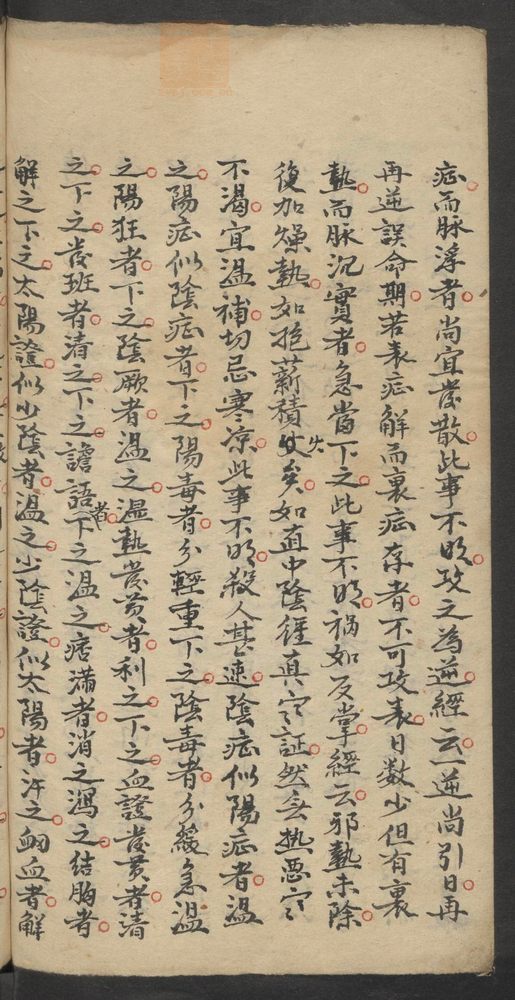 症而脉浮者尚宜發散此事不明攻之為逆經云一逆尚引日再
再逆誤命期若表症解而裏症存者不可攻表日数少但有裏
熱而脉沉實者急當下之此事不明禍如反掌經云邪熱未除
復加燥熱如抱薪積火矣如直中陰經真寒証然無熱惡寒
不渴宜温補切忌寒凉此事不明殺人甚速陰症似陽症者温
之陽症似陰症者下之陽毒者分輕重下之陰毒者分緩急温
之陽狂者下之陰厥者温之濕熱發黃者利之下之血證發黃者清
之下之發班者清之下之譫語者下之温之痞滿者消之瀉之結胸者
解之下之太陽證似少陰者温之少陰證似太陽者汗之衂血者解